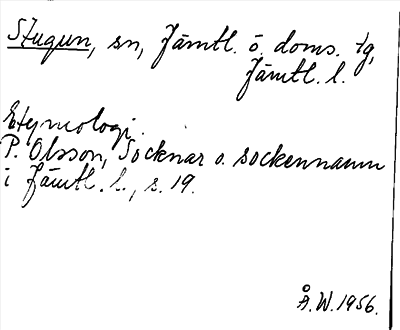 Stugun, sn, Jämtl. ö. doms. tg,
Jämtl. l.
Etymologi.
P. Olsson, Socknar o. sockennamn
i Jämtl. l., s. 19.
Å.W. 1956.